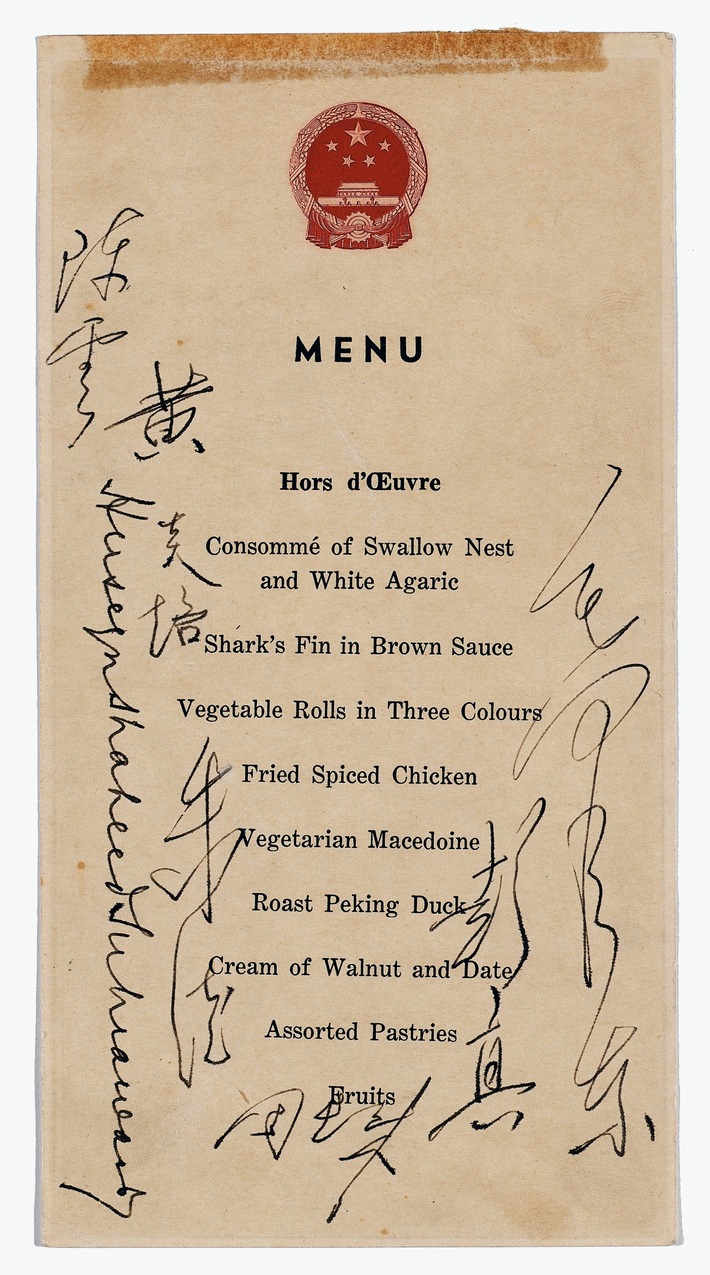 MENU
Hors d'Œuvre
Consommé of Swallow Nest
and White Agaric
Shark's Fin in Brown Sauce
Vegetable Rolls in Three Colours
Fried Spiced Chicken
Vegetarian Macedoine
Roast Peking Duck
Cream of Walnut and Date
Assorted Pastries
Fruits
陳雲
黄炎培
Huseyn Shaheed Suhrawardy
朱德
彭真
毛澤东